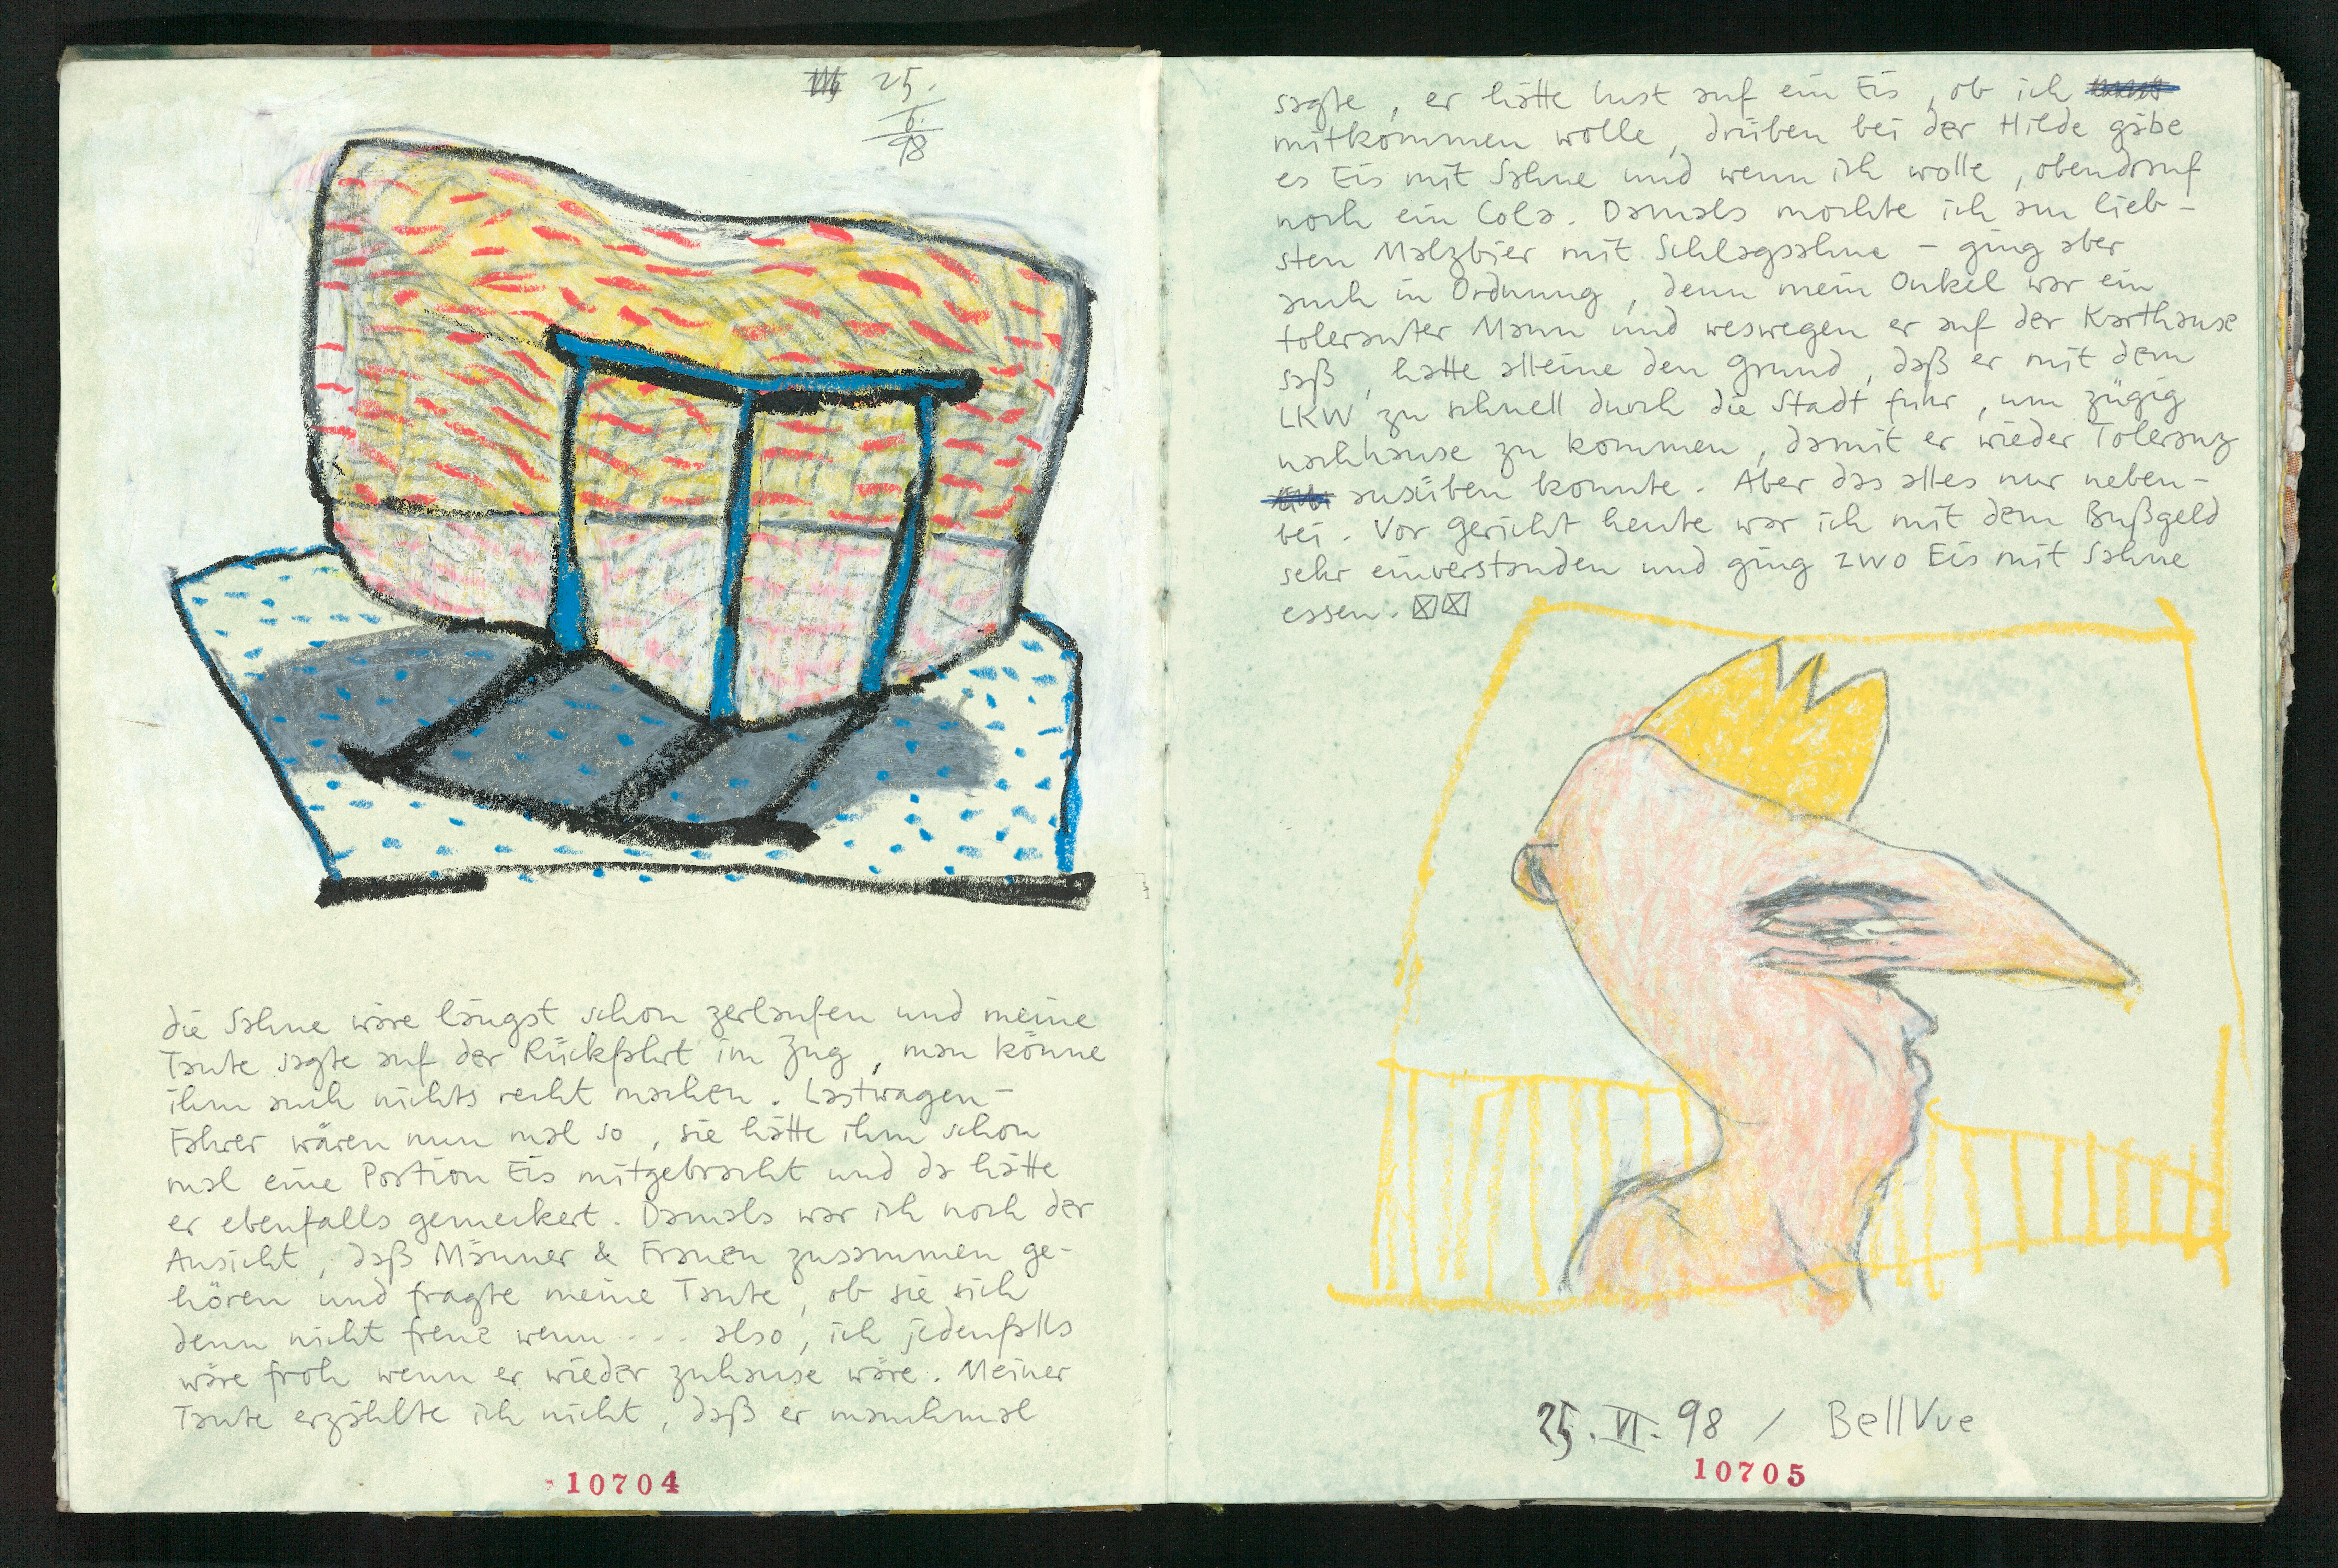 25.
6.
98
die Sahne wäre längst schon zerlaufen und meine
Tante sagte auf der Rückfahrt im Zug, man könne
ihm auch nichts recht machen. Lastwagen-
Fahrer wären nun mal so, sie hätte ihm schon
mal eine Portion Eis mitgebracht und da hätte
er ebenfalls gemeckert. Damals war ich noch der
Ansicht, daß Männer & Frauen zusammen ge-
hören und fragte meine Tante, ob sie sich
denn nicht freue wenn .... also, ich jedenfalls
wäre froh wenn er wieder zuhause wäre. Meiner
Tante erzählte ich nicht, daß er manchmal
10704
sagte, er hätte Lust auf ein Eis, ob ich
mitkommen wolle, drüben bei der Hilde gäbe
es Eis mit Sahne und wenn ich wolle, obendrauf
noch ein Cola. Damals mochte ich am lieb-
sten Malzbier mit Schlagsahne – ging aber
auch in Ordnung, denn mein Onkel war ein
toleranter Mann und weswegen er auf der Karthause
saß, hatte alleine den Grund, daß er mit dem
LKW zu schnell durch die Stadt fuhr, um zügig
nachhause zu kommen, damit er wieder Toleranz
ausüben konnte. Aber das alles nur neben-
bei. Vor Gericht heute war ich mit dem Bußgeld
sehr einverstanden und ging zwo Eis mit Sahne
essen.
25. VI. 98 / BellVue
10705